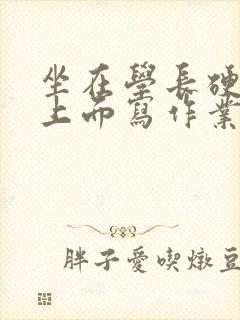 坐在學長硬
上而寫作業
胖子愛喫燉豆